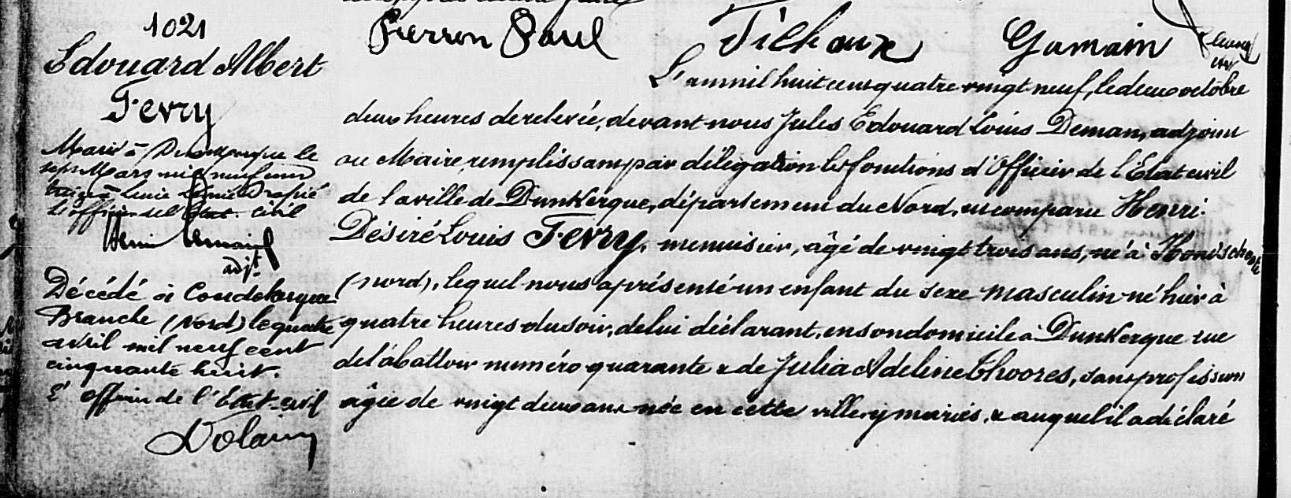 1021
Edouard Albert
Fevry
Marié à Dunkerque le
sept Mars mil neuf cent
treize à Lucie
L'officier de l'Etat civil
adjt
Décédé à Coudekerque
Branche (Nord) le quatre
avril mil neuf cent
cinquante huit.
L'officier de l'Etat-civil
Pierron Paul Tilhaux Gamain
L'an mil huit cent quatre vingt neuf, le deux octobre
deux heures de relevée, devant nous Jules Édouard Louis Deman, adjoint
au Maire, remplissant par délégation les fonctions d'Officier de l'Etat civil
de la ville de Dunkerque, département du Nord, est comparu Henri
Désiré Louis Fevry, menuisier, âgé de vingt trois ans, né à Hondschoote
(Nord), lequel nous a présenté un enfant du sexe masculin né hier à
quatre heures du soir, de lui déclarant, en son domicile à Dunkerque rue
de l'abattoir numéro quarante & de Julia Adeline Thoores, sans profession
âgée de vingt deux ans née en cette ville y mariés, & auquel il a déclaré